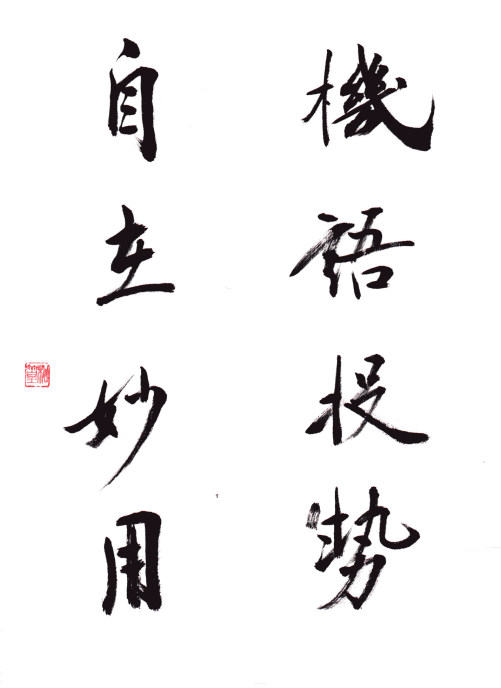 機語投勢
自在妙用